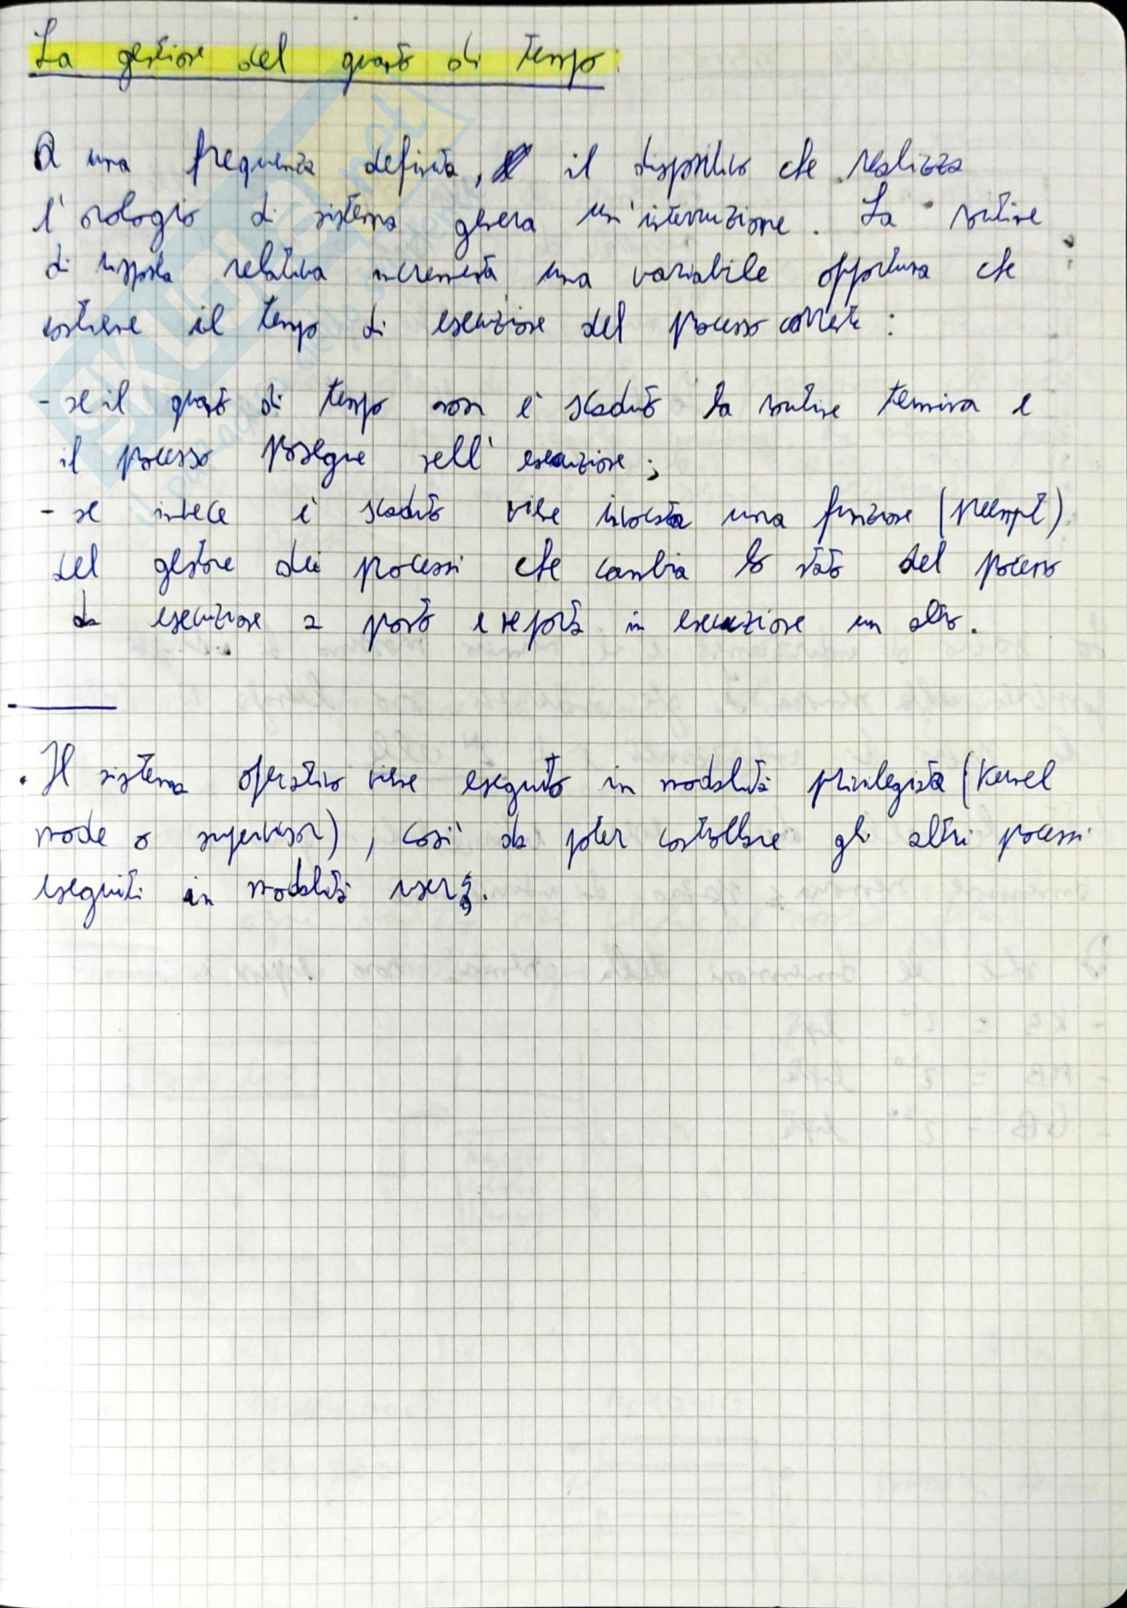 La gestione del quanto di tempo:
A una frequenza definita, il dispositivo che realizza
l'orologio di sistema genera un'interruzione. La routine
di risposta relativa incrementa una variabile opportuna che
contiene il tempo di esecuzione del processo corrente:
- se il quanto di tempo non è scaduto la routine termina e
il processo prosegue nell'esecuzione;
- se invece è scaduto viene invocata una funzione (preempt)
del gestore dei processi che cambia lo stato del processo
da esecuzione a pronto e reporta in esecuzione un altro.
. Il sistema operativo viene eseguito in modalità privilegiata (Kernel
mode o supervisor), così da poter controllare gli altri processi
eseguiti in modalità user.